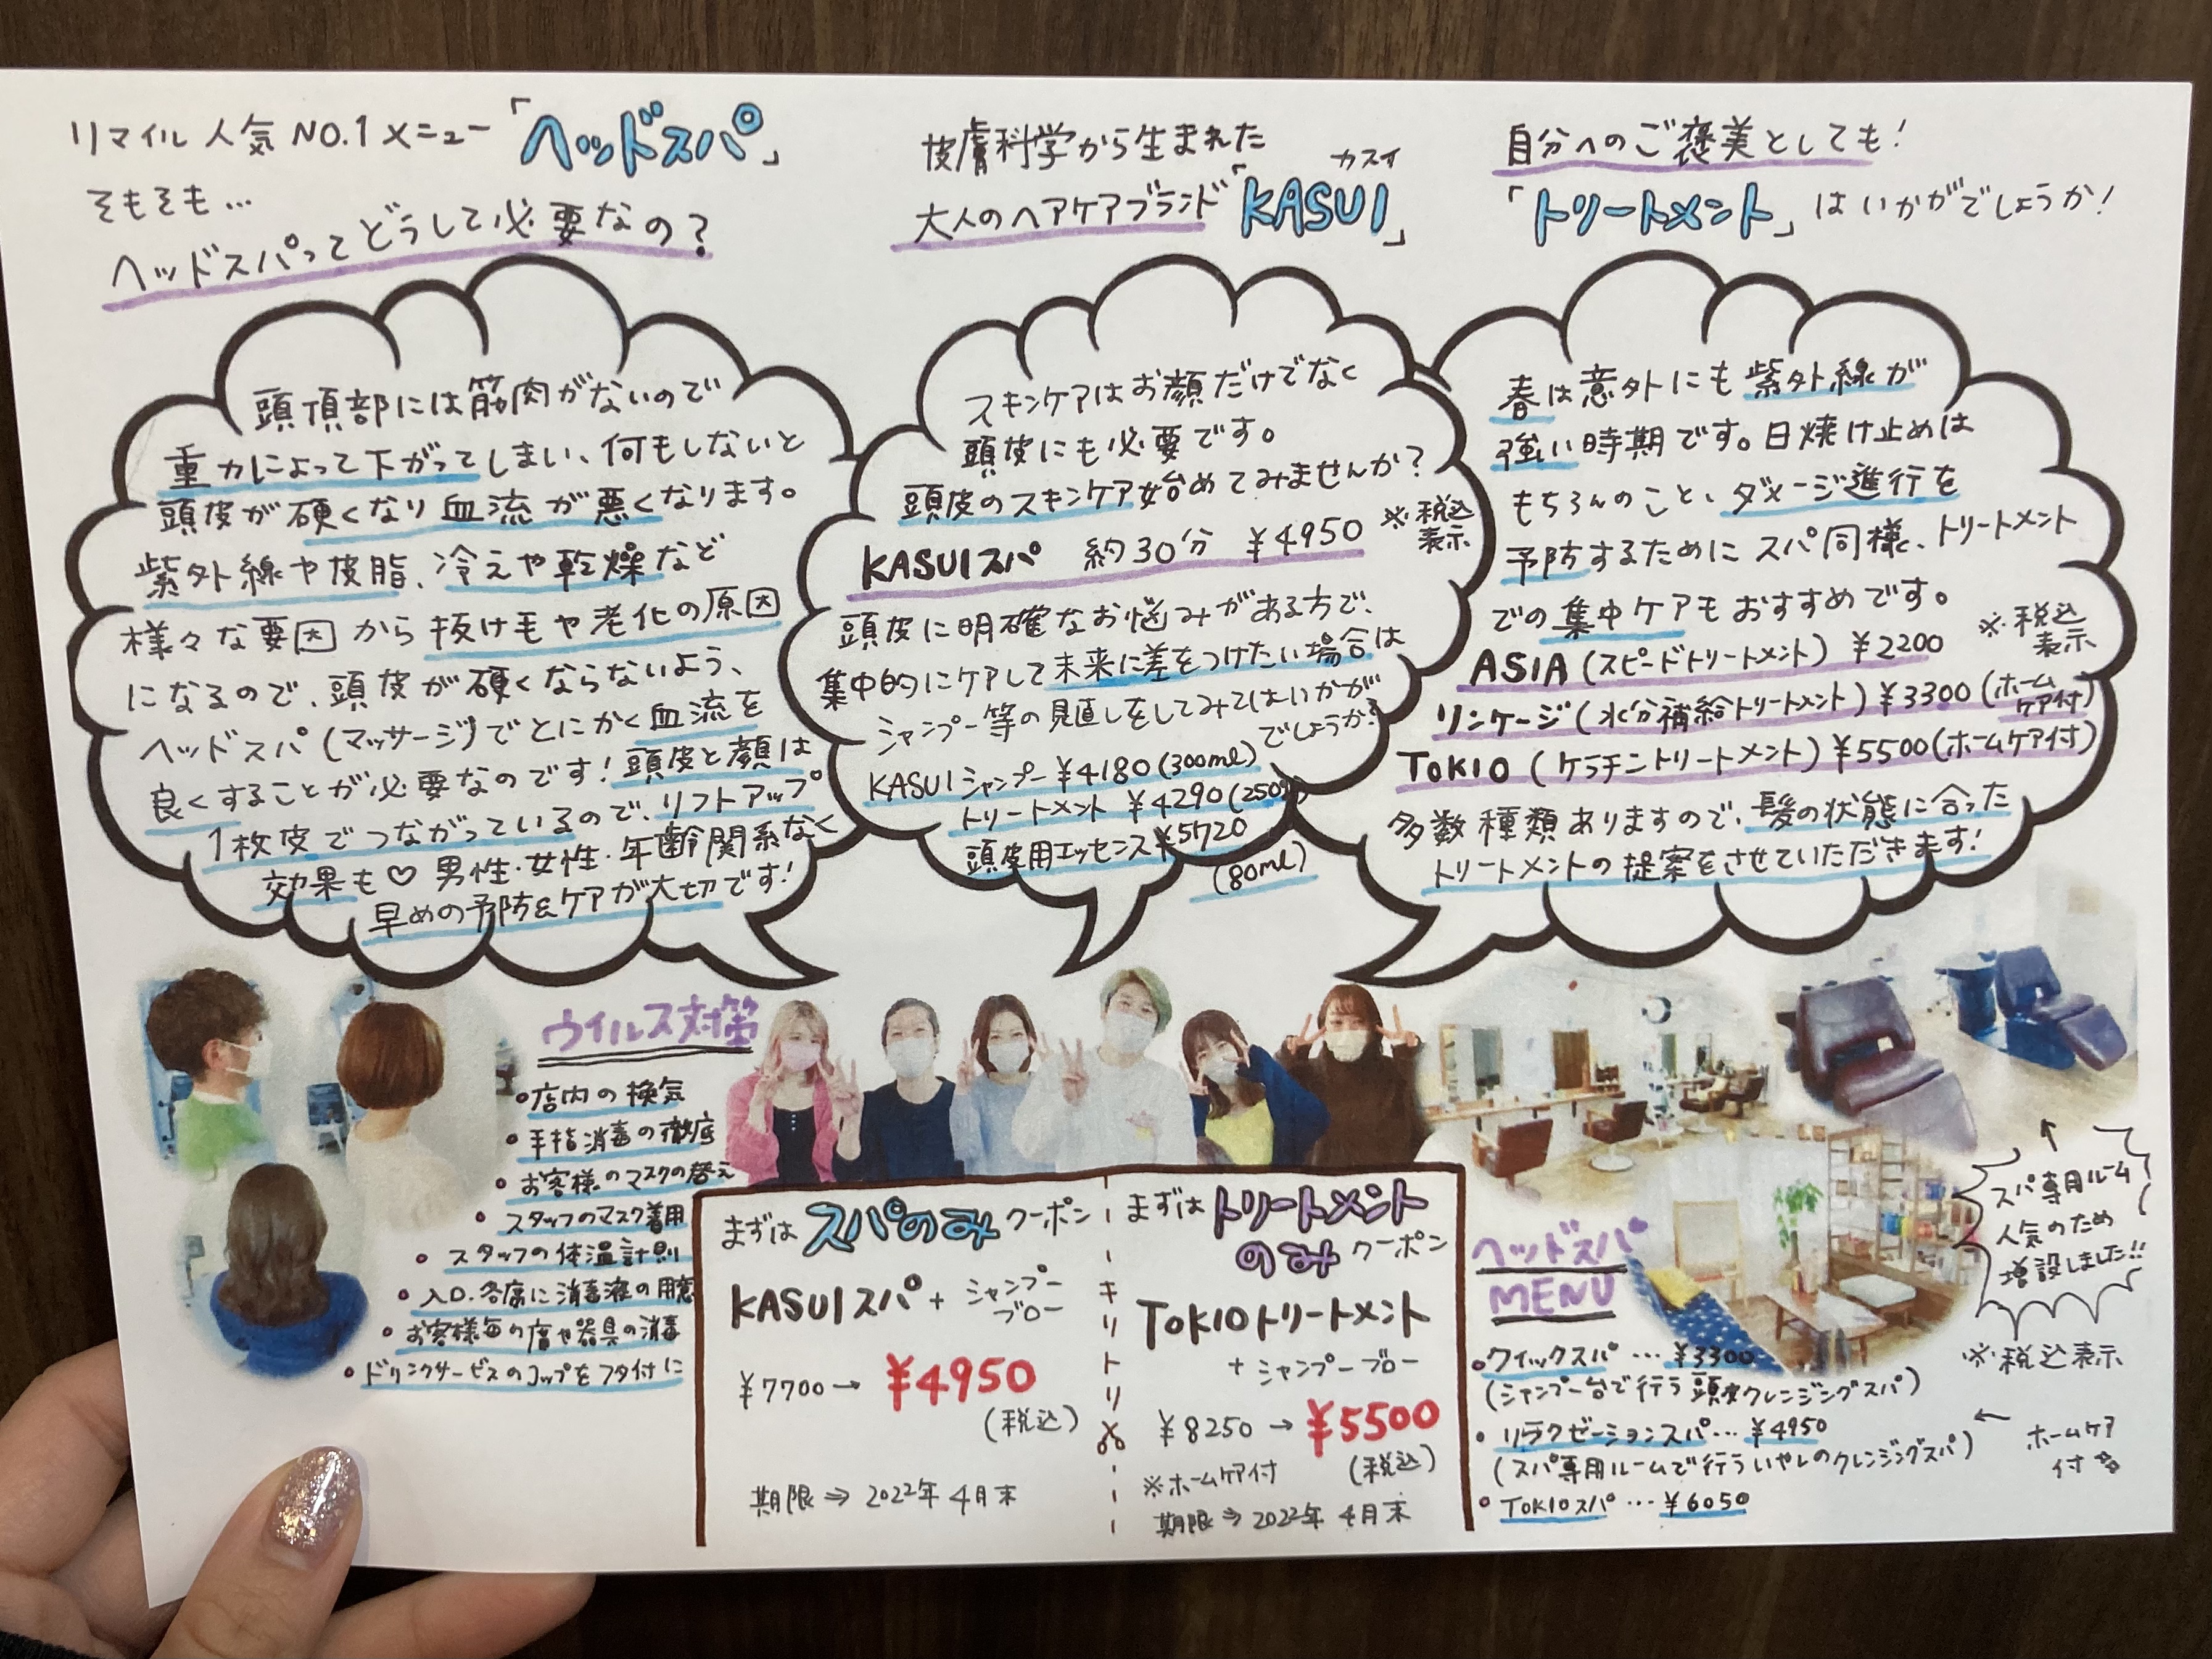 リマイル 人気 NO.1 メニュー「ヘッドスパ」
そもそも…
ヘッドスパってどうして必要なの？
頭頂部には筋肉がないので
重力によって下がってしまい、何もしないと
頭皮が硬くなり血流が悪くなります。
紫外線や皮脂、冷えや乾燥など
様々な要因から抜け毛や老化の原因
になるので、頭皮が硬くならないよう、
ヘッドスパ(マッサージ)でとにかく血流を
良くすることが必要なのです！頭皮と顔は
1枚皮でつながっているので、リフトアップ
効果も♡ 男性・女性・年齢関係なく
早めの予防&ケアが大切です！
皮膚科学から生まれた
カスイ
大人のヘアケアブランド「KASUI」
スキンケアはお顔だけでなく
頭皮にも必要です。
頭皮のスキンケア始めてみませんか？
KASUIスパ 約30分 ¥4950 ※税込
表示
頭皮に明確なお悩みがある方で、
集中的にケアして未来に差をつけたい場合は
シャンプー等の見直しをしてみてはいかが
でしょうか？
KASUIシャンプー ¥4180(300ml)
トリートメント ¥4290(250g)
頭皮用エッセンス ¥5720
(80ml)
自分へのご褒美としても！
「トリートメント」はいかがでしょうか！
春は意外にも紫外線が
強い時期です。日焼け止めは
もちろんのこと、ダメージ進行を
予防するためにスパ同様、トリートメント
での集中ケアもおすすめです。
※税込
表示
ASIA(スピードトリートメント) ¥2200
リンケージ(水分補給トリートメント) ¥3300(ホーム
ケア付)
TOKIO(ケラチントリートメント) ¥5500(ホームケア付)
多数種類ありますので、髪の状態に合った
トリートメントの提案をさせていただきます！
ウイルス対策
•店内の換気
•手指消毒の徹底
•お客様のマスクの替え
•スタッフのマスク着用
•スタッフの体温計測
•入口・各席に消毒液の用意
•お客様毎の席や器具の消毒
•ドリンクサービスのコップをフタ付に
まずはスパのみクーポン
KASUIスパ+ シャンプー
ブロー
¥7700→ ¥4950
(税込)
期限⇒ 2022年 4月末
キリトリ
まずはトリートメント
のみクーポン
TOKIOトリートメント
+シャンプーブロー
¥8250→¥5500
(税込)
※ホームケア付
期限⇒ 2022年 4月末
ヘッドスパ
MENU
•クイックスパ…¥3300
(シャンプー台で行う頭皮クレンジングスパ)
•リラクゼーションスパ…¥4950
(スパ専用ルームで行ういやしのクレンジングスパ)
•TOKIOスパ…¥6050
スパ専用ルーム
人気のため
増設しました!!
※税込表示
← ホームケア
付き